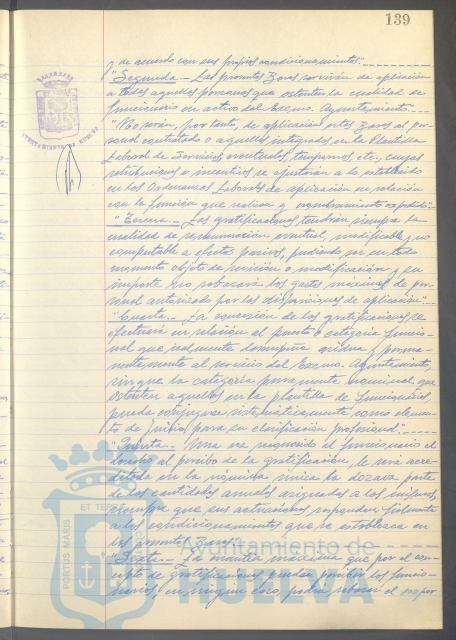 139
y de acuerdo con sus propios condicionamientos".
"Segunda.- Las presentes Bases servirán de aplicación
a todas aquellas personas que ostenten la cualidad de
funcionario en activo del Excmo. Ayuntamiento".
"No serán, por tanto, de aplicación estas Bases al per-
sonal contratado o aquellos integrados en la Plantilla
Laboral de Servicios, eventuales, temporeros, etc., cuyas
retribuciones o incentivos se ajustarán a lo establecido
en las Ordenanzas Laborales de aplicación en relación
con la función que realicen y nombramiento expedido".
"Tercera.- Las gratificaciones tendrán siempre la
cualidad de remuneración anual, modificable y no
computable a efectos pasivos, pudiendo ser en todo
momento objeto de revisión o modificación y su
importe no rebasará los gastos máximos de per-
sonal autorizado por las disposiciones de aplicación".
"Cuarta.- La concesión de las gratificaciones se
efectuará en relación al puesto o categoría funcio-
nal que realmente desempeña asidua y perma-
nentemente al servicio del Excmo. Ayuntamiento,
sin que la categoría puramente nominal que
ostenten aquellos en la plantilla de funcionarios,
pueda conjugarse sistemáticamente como elemen-
to de juicio para su clasificación profesional".
"Quinta.- Una vez reconocido al funcionario el
derecho al percibo de la gratificación, le será acre-
ditada en la nómina única la dozava parte
de las cantidades anuales asignadas a los mismos,
siempre que sus actuaciones respondan fielmente
a los condicionamientos que se establezca en
las presentes Bases".
"Sexta.- La cuantía máxima que por el con-
cepto de gratificaciones puedan percibir los funcio-
narios, en ningún caso, podrá rebasar el 100 por
AYUNTAMIENTO DE HUELVA
PORTUS MARIS
ET TERRAE
Ayuntamiento de
HUELVA